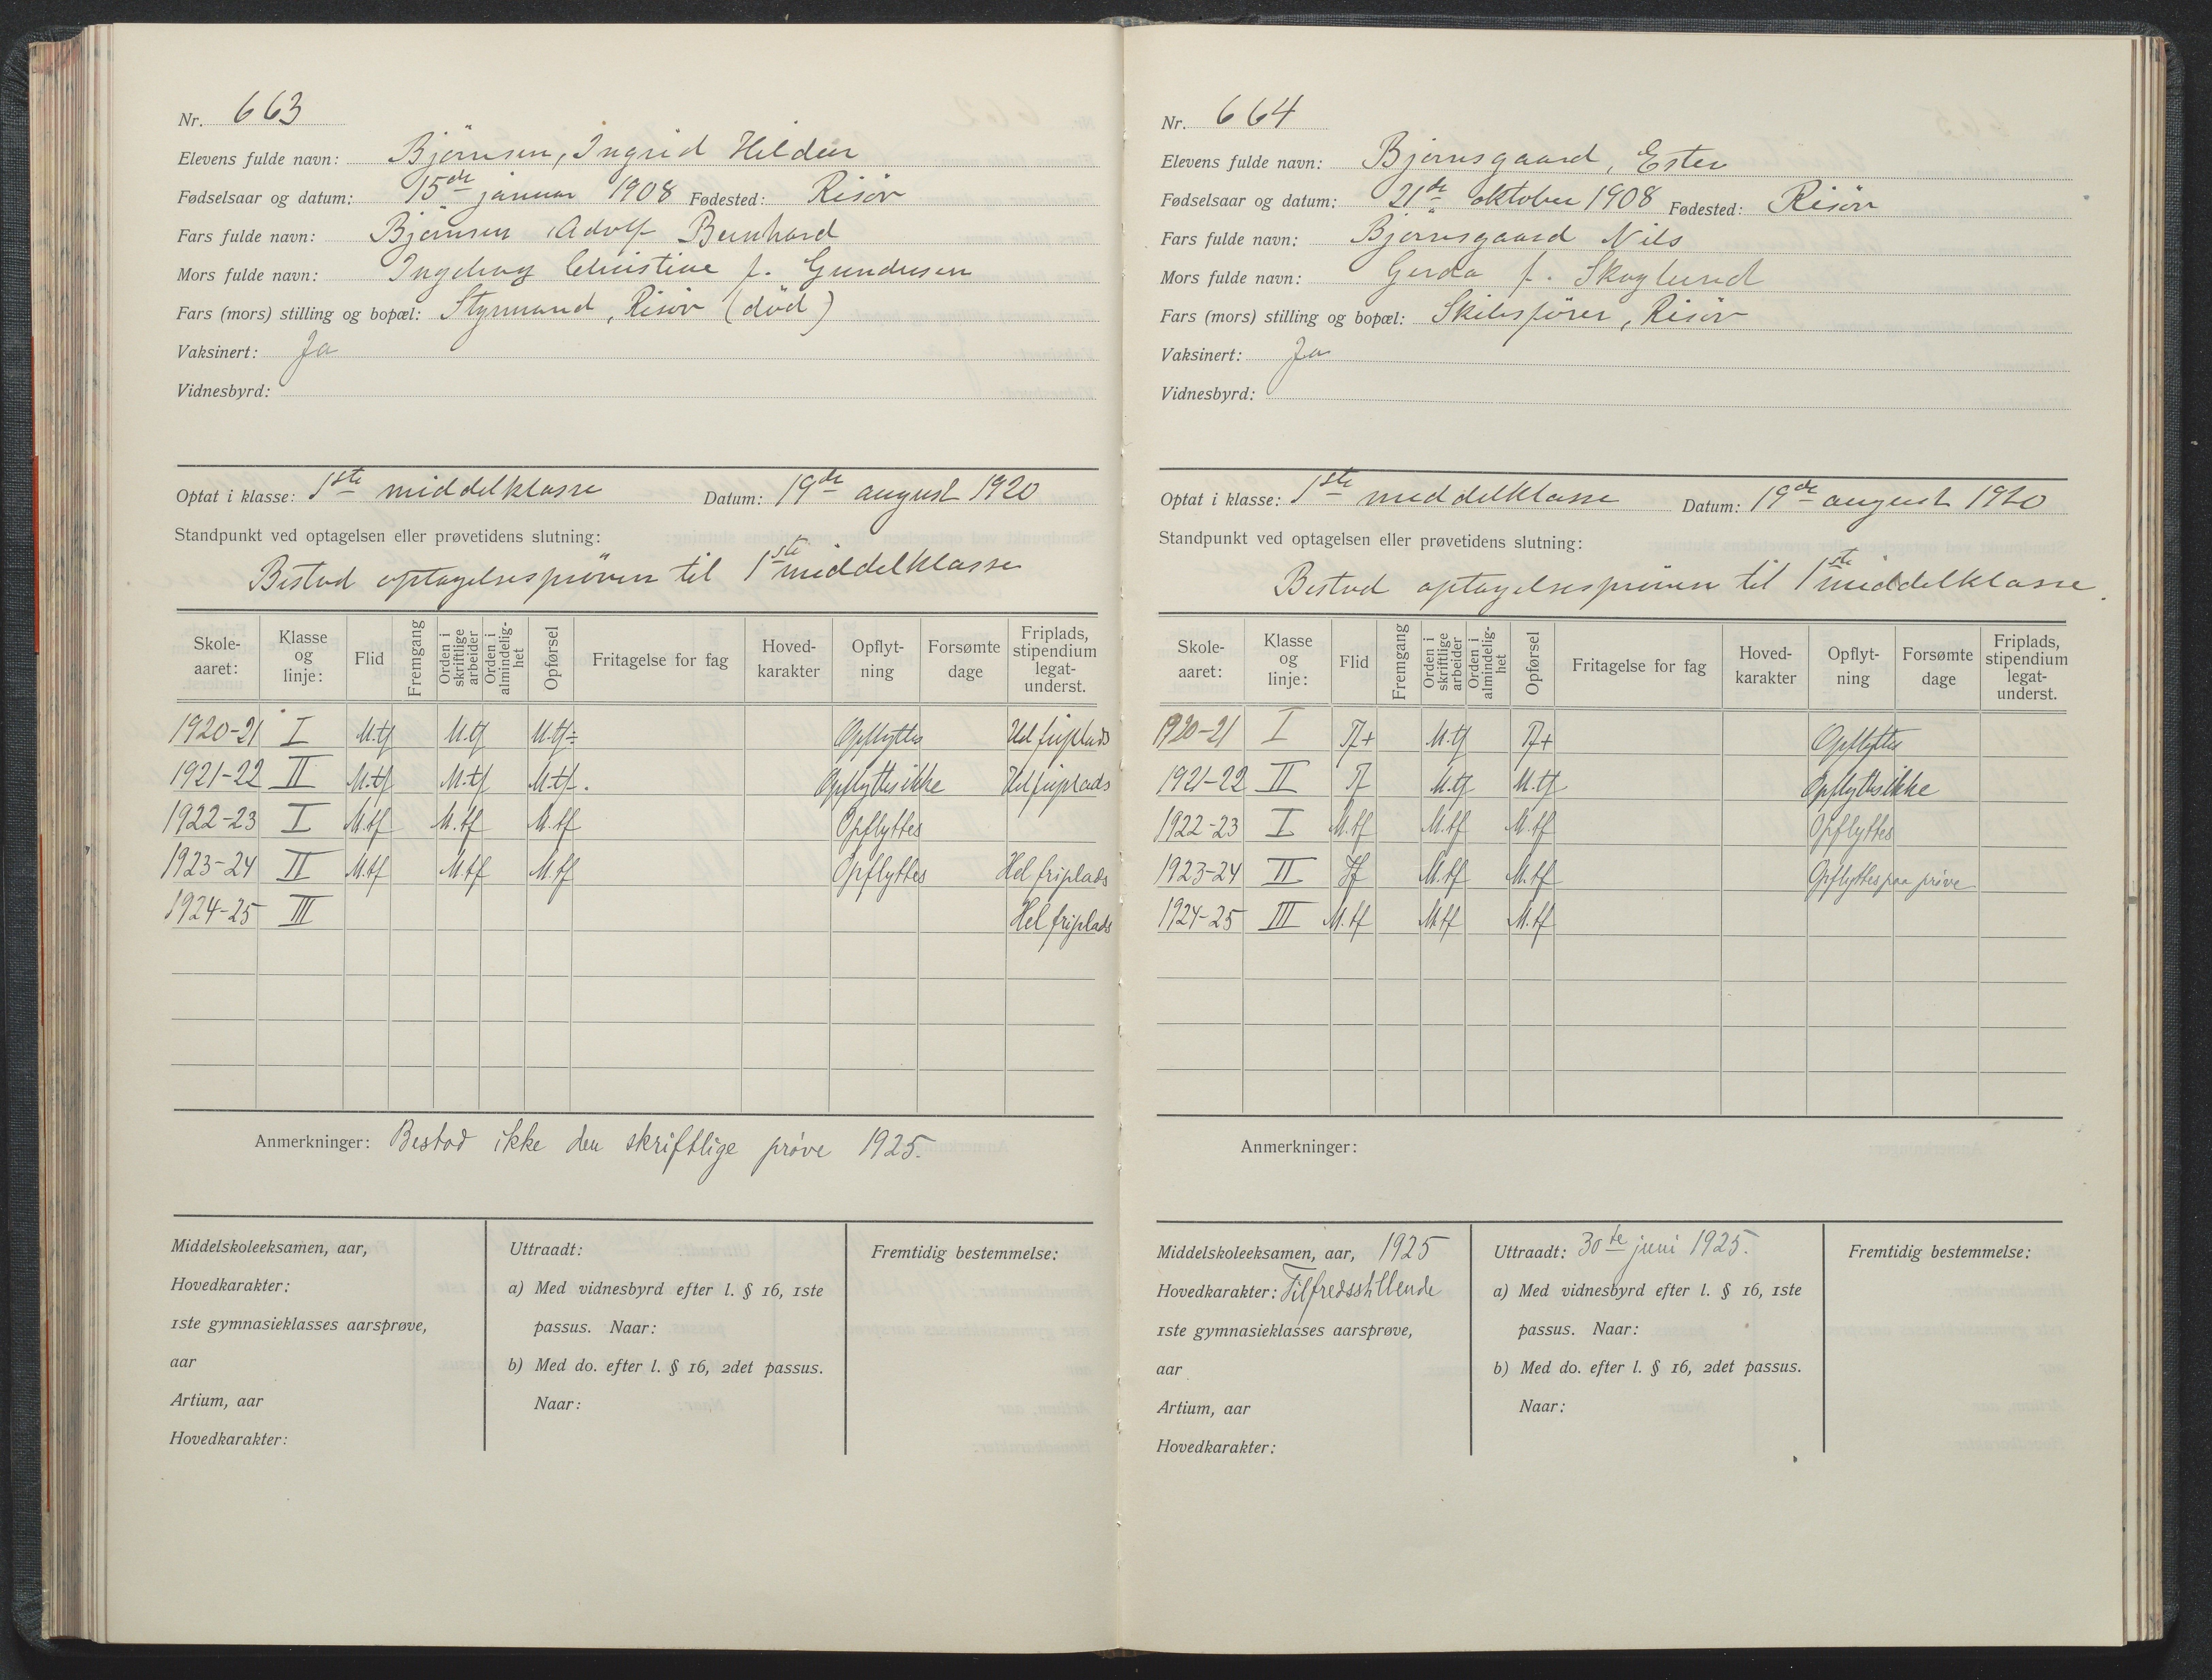 Nr. 663
Elevens fulde navn: Bjørnsen, Ingrid Hildur
Fødselsaar og datum: 15de januar 1908 Fødested: Risör
Fars fulde navn: Bjørnsen Adolf Bernhard
Mors fulde navn: Ingeborg Christine f. Gundersen
Fars (mors) stilling og bopæl: Styrmand, Risör (död)
Vaksinert: Ja
Vidnesbyrd:
Optat i klasse: 1ste middelklasse Datum: 19de august 1920
Standpunkt ved optagelsen eller prøvetidens slutning:
Bestod optagelsesprøven til 1ste middelklasse
Skole-aaret: Klasse og linje: Flid Fremgang Orden i skriftlige arbeider Orden i almindelig-het Opførsel Fritagelse for fag Hoved-karakter Opflyt-ning Forsømte dage Friplads, stipendium legat-underst.
1920-21 I M.tf M.tf M.tf÷ Opflyttes Hel friplads
1921-22 II M.tf M.tf M.tf. Opflyttes ikke Hel friplads
1922-23 I M.tf M.tf M.tf Opflyttes
1923-24 II M.tf M.tf M.tf Opflyttes Hel friplads
1924-25 III Hel friplads
Anmerkninger: Bestod ikke den skriftlige prøve 1925.
Middelskoleeksamen, aar,
Hovedkarakter:
1ste gymnasieklasses aarsprøve,
aar
Artium, aar
Hovedkarakter:
Uttraadt:
a) Med vidnesbyrd efter l. § 16, 1ste
passus. Naar:
b) Med do. efter l. § 16, 2det passus.
Naar:
Fremtidig bestemmelse:
Nr. 664
Elevens fulde navn: Bjørnsgaard, Ester
Fødselsaar og datum: 21de oktober 1908 Fødested: Risör
Fars fulde navn: Bjørnsgaard Nils
Mors fulde navn: Gerda f. Skoglund
Fars (mors) stilling og bopæl: Skibsfører, Risör
Vaksinert: Ja
Vidnesbyrd:
Optat i klasse: 1ste middelklasse Datum: 19de august 1920
Standpunkt ved optagelsen eller prøvetidens slutning:
Bestod optagelsesprøven til 1ste middelklasse.
Skole-aaret: Klasse og linje: Flid Fremgang Orden i skriftlige arbeider Orden i almindelig-het Opførsel Fritagelse for fag Hoved-karakter Opflyt-ning Forsømte dage Friplads, stipendium legat-underst.
1920-21 I Tf+ M.tf Tf+ Opflyttes
1921-22 II Tf M.tf M.tf Opflyttes ikke
1922-23 I M.tf M.tf M.tf Opflyttes
1923-24 II Tf M.tf M.tf Opflyttes paa prøve
1924-25 III M.tf M.tf M.tf
Anmerkninger:
Middelskoleeksamen, aar, 1925
Hovedkarakter: Tilfredsstillende
1ste gymnasieklasses aarsprøve,
aar
Artium, aar
Hovedkarakter:
Uttraadt: 30te juni 1925.
a) Med vidnesbyrd efter l. § 16, 1ste
passus. Naar:
b) Med do. efter l. § 16, 2det passus.
Naar:
Fremtidig bestemmelse: